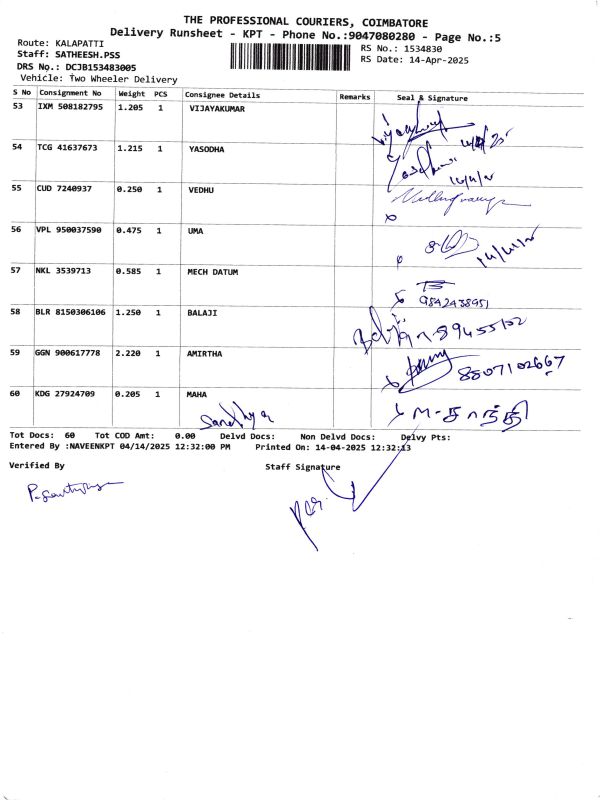 THE PROFESSIONAL COURIERS, COIMBATORE
Delivery Runsheet - KPT - Phone No.:9047080280 - Page No.:5
Route: KALAPATTI
RS No.: 1534830
Staff: SATHEESH.PSS
RS Date: 14-Apr-2025
DRS No.: DCJB153483005
Vehicle: Two Wheeler Delivery
S No Consignment No Weight PCS Consignee Details Remarks Seal & Signature
53 IXM 508182795 1.205 1 VIJAYAKUMAR
54 TCG 41637673 1.215 1 YASODHA
55 CUD 7240937 0.250 1 VEDHU
56 VPL 950037590 0.475 1 UMA
57 NKL 3539713 0.585 1 MECH DATUM
9842438951
58 BLR 8150306106 1.250 1 BALAJI
59 GGN 900617778 2.220 1 AMIRTHA
8807102667
60 KDG 27924709 0.205 1 MAHA
M-சாந்தி
Tot Docs: 60 Tot COD Amt: 0.00 Delvd Docs: Non Delvd Docs: Delvy Pts:
Entered By :NAVEENKPT 04/14/2025 12:32:00 PM Printed On: 14-04-2025 12:32:13
Verified By Staff Signature